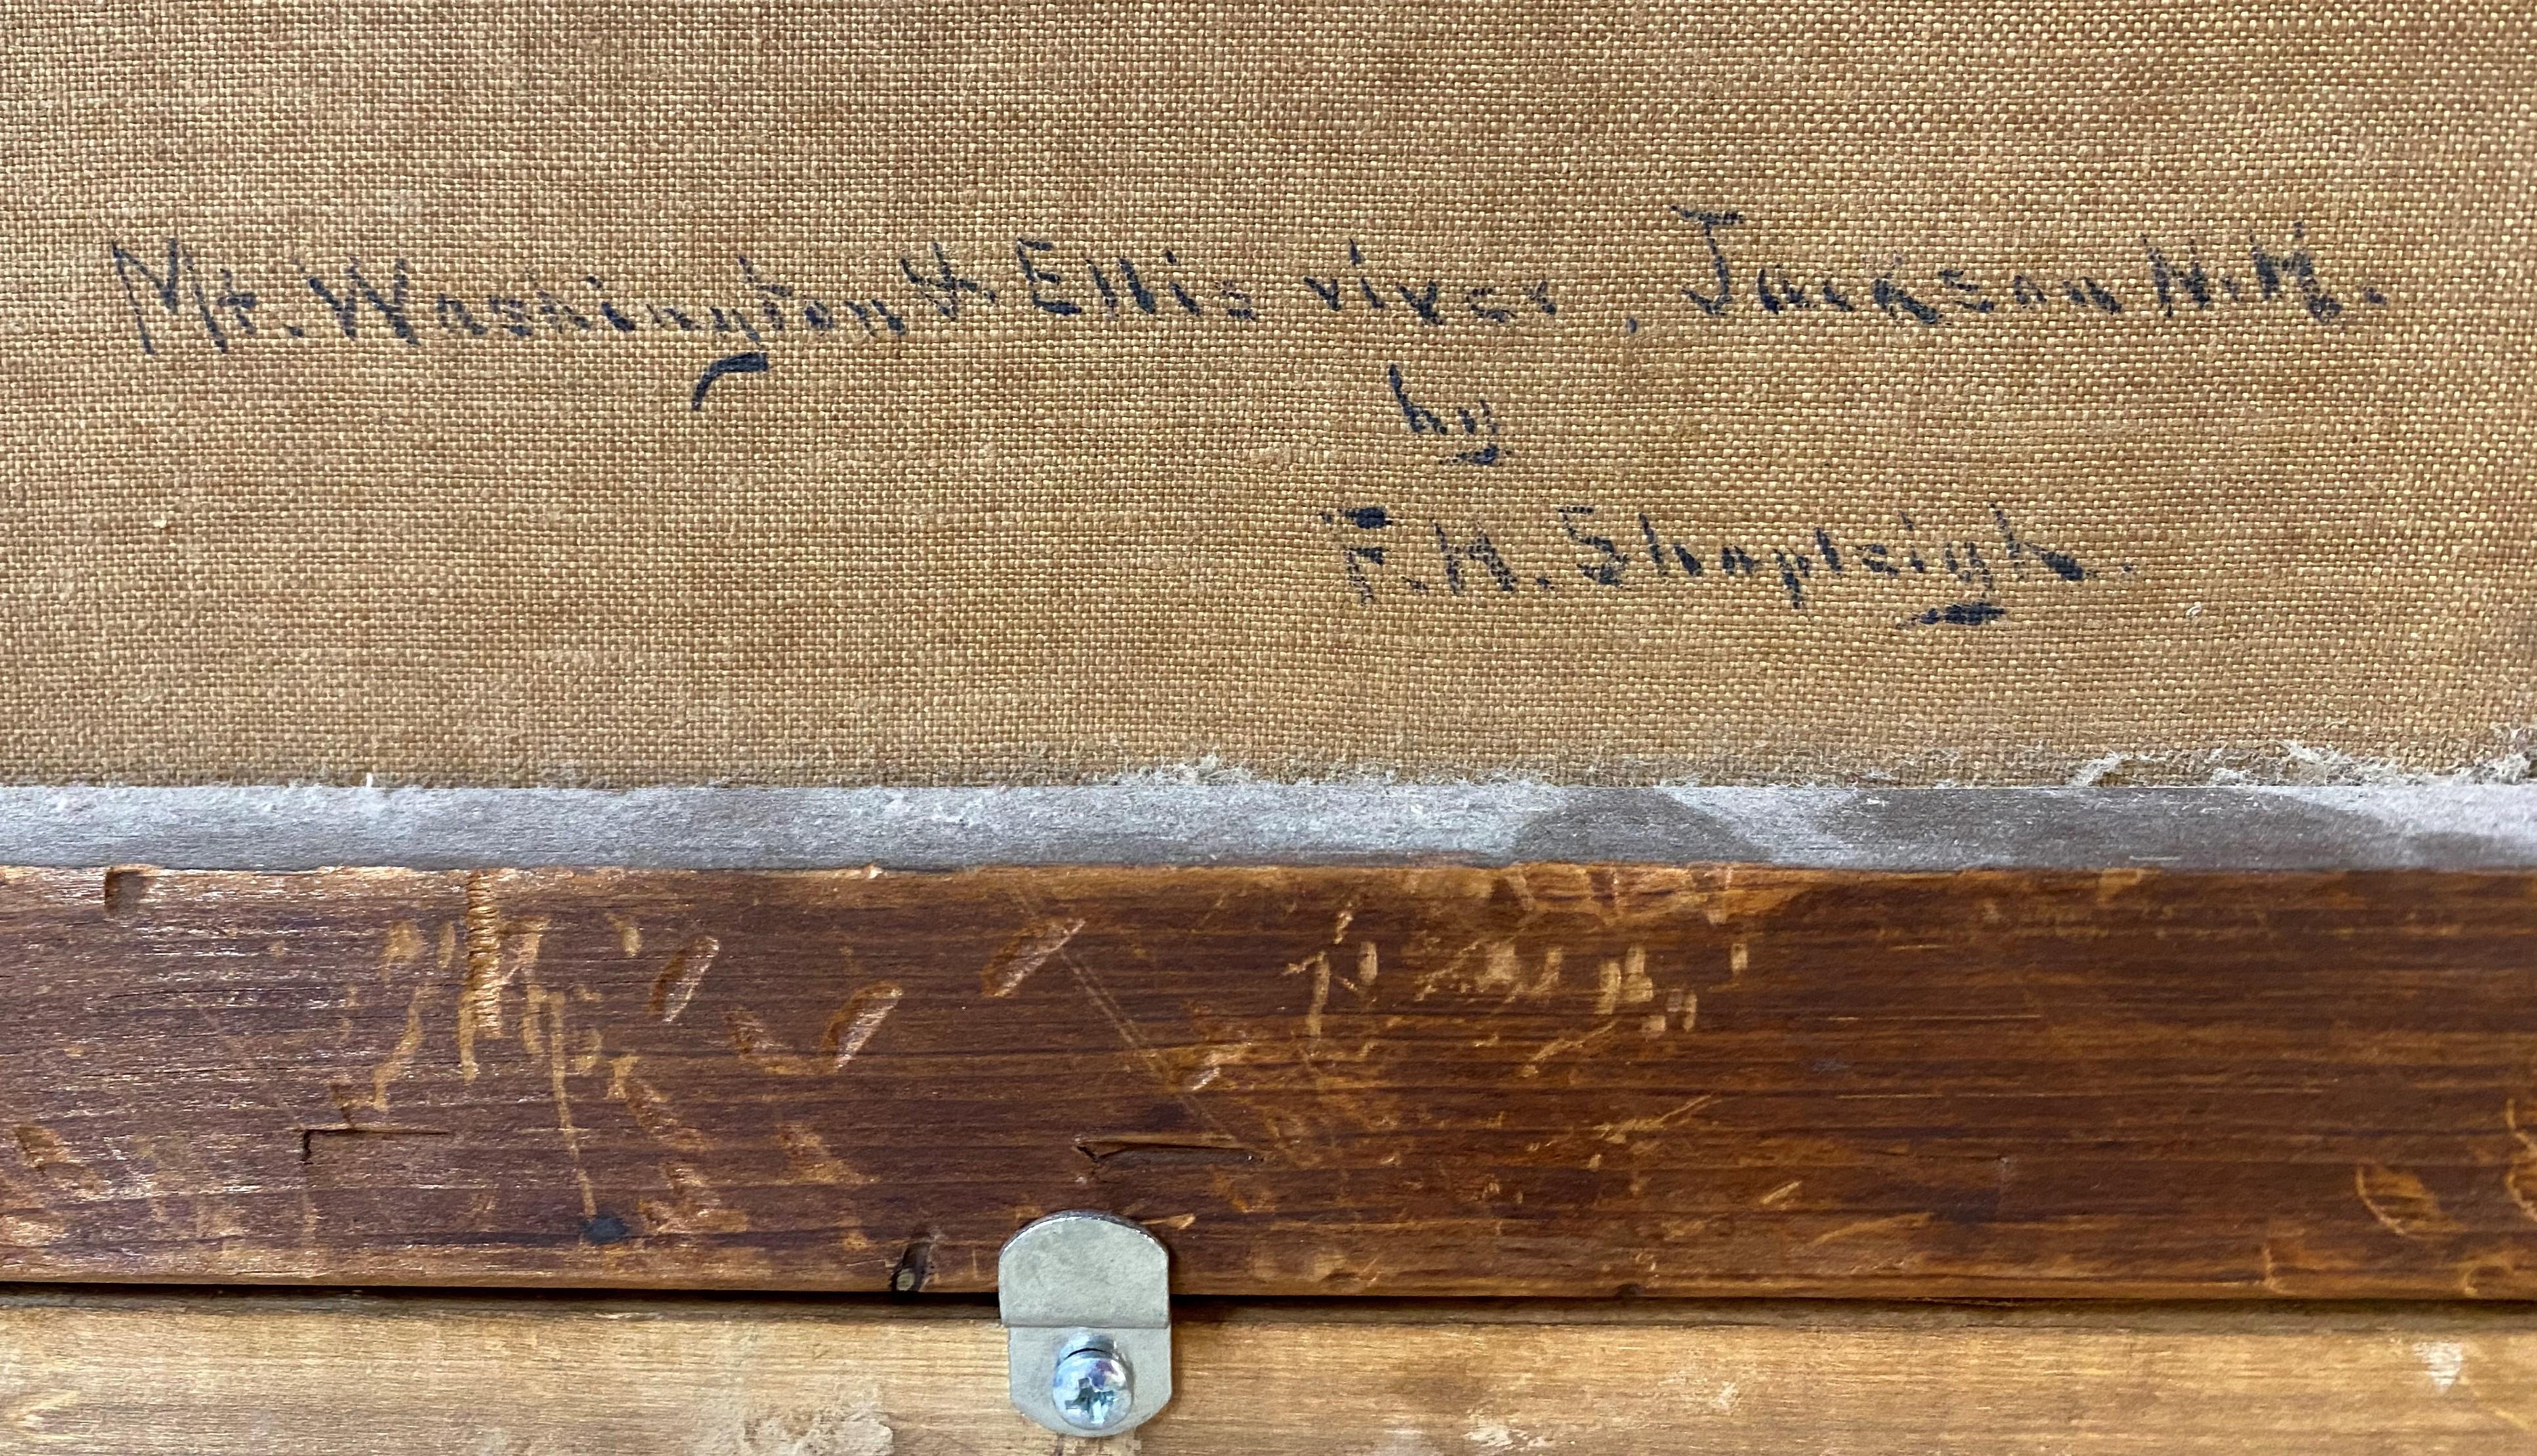 Mt. Washington & Ellis river, Jackson N.H.
by
F.H. Shapleigh.